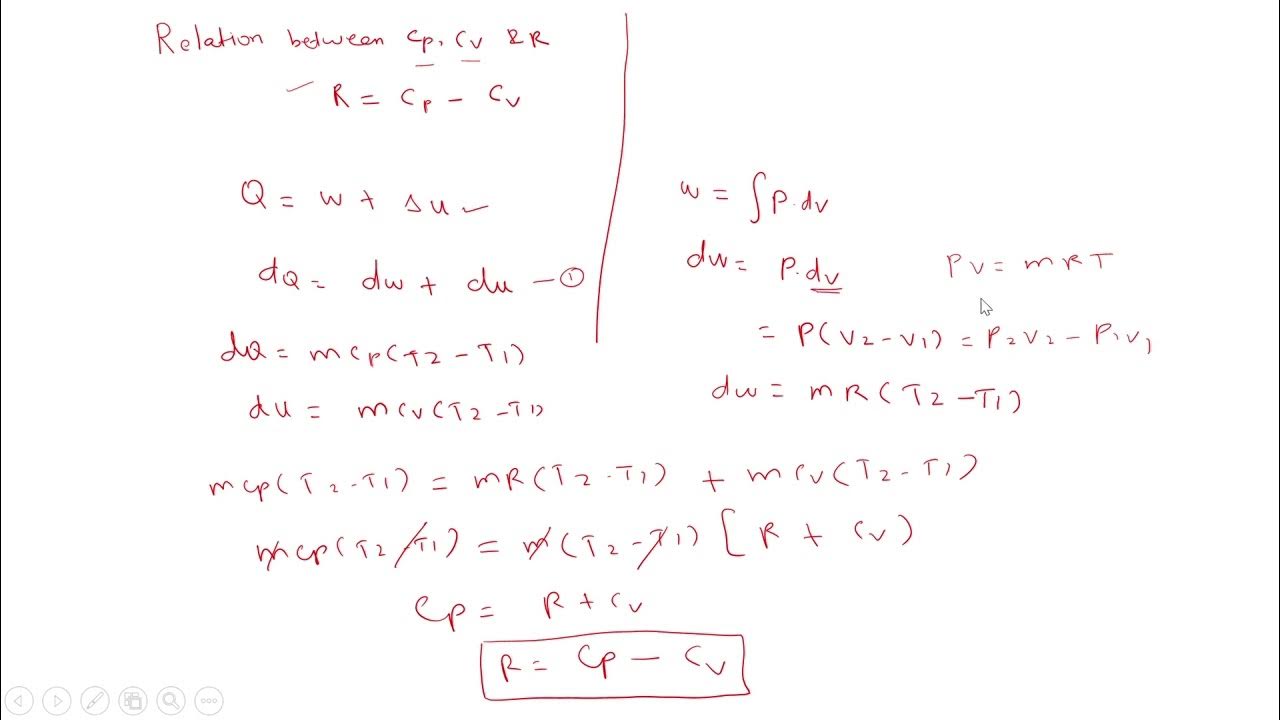 Relation between Cp, Cv & R
R = Cp - Cv
Q = w + Δu
dQ = dw + du - ①
dQ = mCp(T2 - T1)
du = mCv(T2 - T1)
w = ∫P.dv
dw = P.dv
PV = mRT
= P(V2 - V1) = P2V2 - P1V1
dw = mR(T2 - T1)
mCp(T2 - T1) = mR(T2 - T1) + mCv(T2 - T1)
mCp(T2 - T1) = m(T2 - T1) [R + Cv)
Cp = R + Cv
R = Cp - Cv